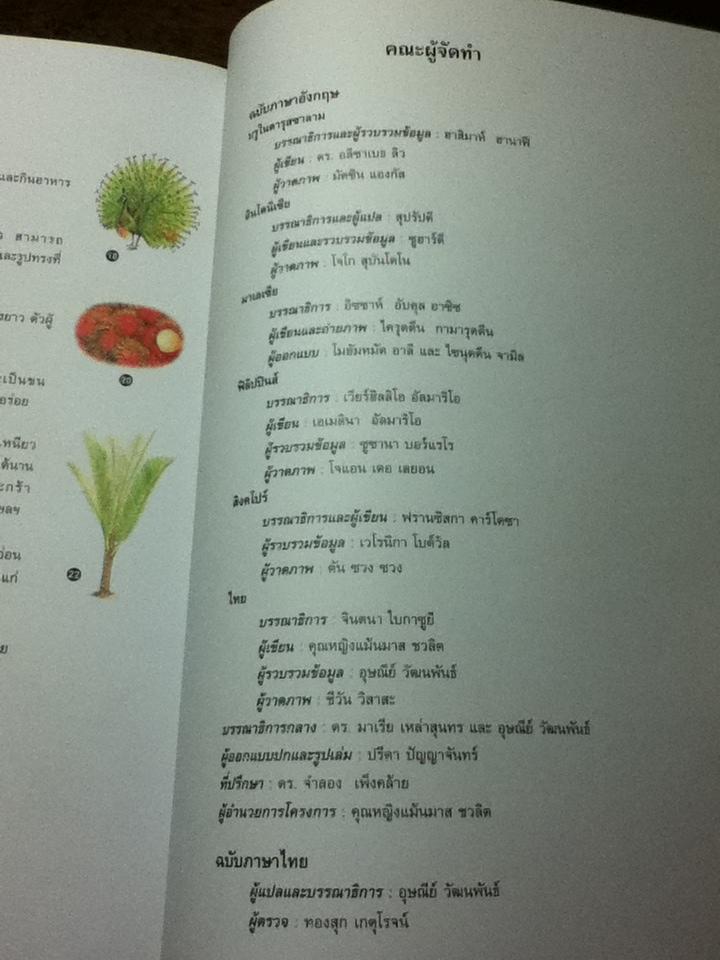 และกินอาหาร
สามารถ
และรูปทรงที่
18
ยาว ตัวผู้
เป็นขน
อร่อย
20
เหนียว
ได้นาน
อ่อน
แก่
22
คณะผู้จัดทำ
ฉบับภาษาอังกฤษ
บรูไนดารุสซาลาม
บรรณาธิการและผู้รวบรวมข้อมูล : ฮาสิมาห์ ฮานาฟี
ผู้เขียน : ดร. อลิซาเบธ ลิว
ผู้วาดภาพ : มัดซิน แองกัส
อินโดนีเซีย
บรรณาธิการและผู้แปล : สุปรับดี
ผู้เขียนและรวบรวมข้อมูล : ซูฮาร์ดี
ผู้วาดภาพ : โจโก สุบันโดโน
มาเลเซีย
บรรณาธิการ : อิซซาห์ อับดุล อาซิซ
ผู้เขียนและถ่ายภาพ : ไครุดดีน กามารุดดีน
ผู้ออกแบบ : โมฮัมหมัด อาลี และ ไซนุดดีน จามิล
ฟิลิปปินส์
บรรณาธิการ : เวียร์ฮิลลิโอ อัลมาริโอ
ผู้เขียน : เอเมดินา อัลมาริโอ
ผู้รวบรวมข้อมูล : ซูซานา บอร์แรโร
ผู้วาดภาพ : โจแอน เดอ เลยอน
สิงคโปร์
บรรณาธิการและผู้เขียน : ฟรานซิสกา คาร์โดซา
ผู้รวบรวมข้อมูล : เวโรนิกา โบต์วัล
ผู้วาดภาพ : ตัน ซวง ซวง
ไทย
บรรณาธิการ : จินตนา ใบกาซูยี
ผู้เขียน : คุณหญิงแม้นมาส ชวลิต
ผู้รวบรวมข้อมูล : อุษณีย์ วัฒนพันธ์
ผู้วาดภาพ : ชีวัน วิสาสะ
บรรณาธิการกลาง : ดร. มาเรีย เหล่าสุนทร และ อุษณีย์ วัฒนพันธ์
ผู้ออกแบบปกและรูปเล่ม : ปรีดา ปัญญาจันทร์
ที่ปรึกษา : ดร. จำลอง เพ็งคล้าย
ผู้อำนวยการโครงการ : คุณหญิงแม้นมาส ชวลิต
ฉบับภาษาไทย
ผู้แปลและบรรณาธิการ : อุษณีย์ วัฒนพันธ์
ผู้ตรวจ : ทองสุก เกตุโรจน์